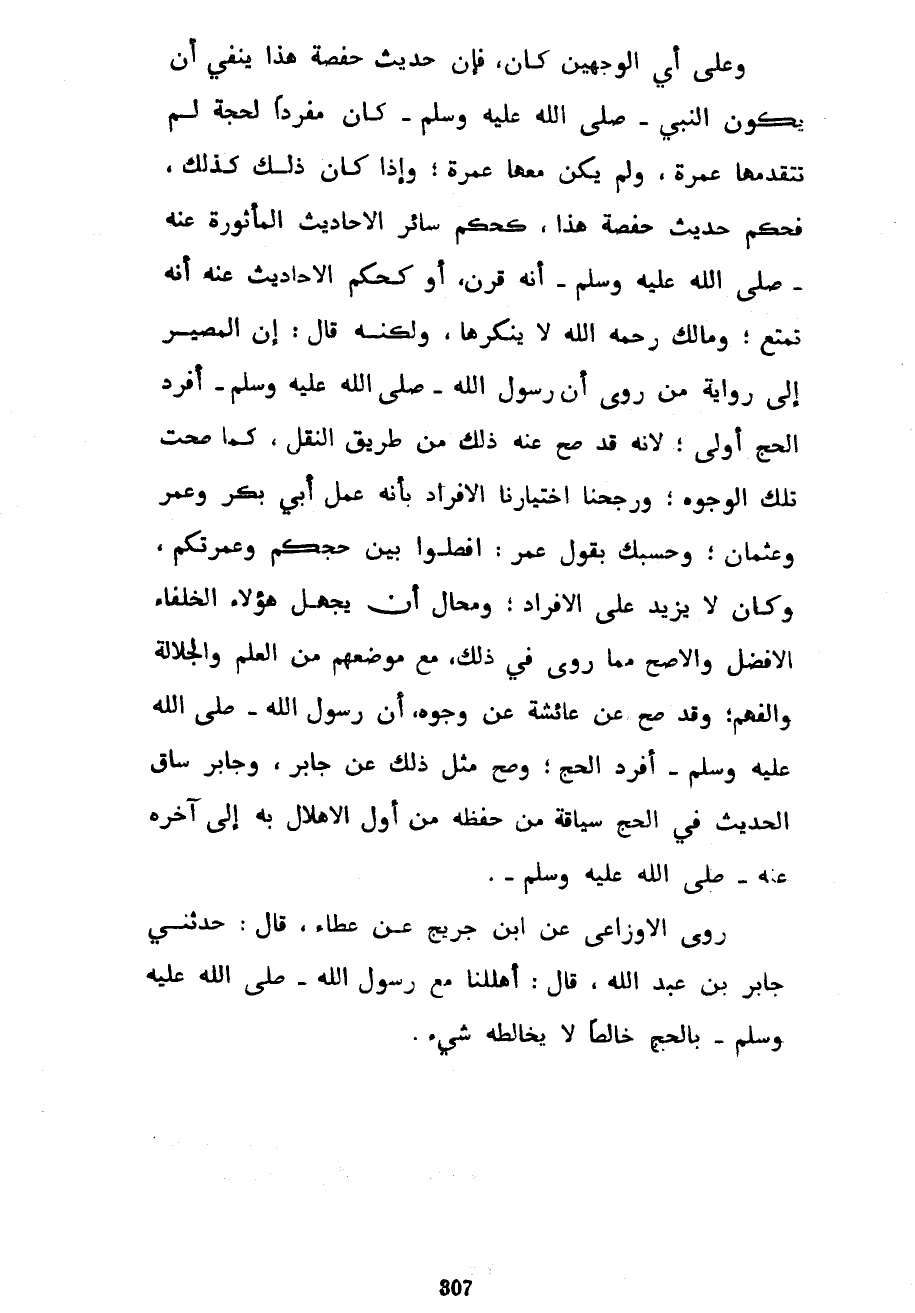 وعلى أي الوجهين كان، فإن حديث حفصة هذا ينفي أن
يكون النبي ـ صلى الله عليه وسلم ـ كان مفرداً لحجة لم
تتقدمها عمرة ، ولم يكن معها عمرة ؛ وإذا كان ذلك كذلك ،
فحكم حديث حفصة هذا ، كحكم سائر الاحاديث المأثورة عنه
ـ صلى الله عليه وسلم ـ أنه قرن، أو كحكم الاحاديث عنه أنه
تمتع ؛ ومالك رحمه الله لا ينكرها ، ولكنه قال : إن المصير
إلى رواية من روى أن رسول الله ـ صلى الله عليه وسلم ـ أفرد
الحج أولى ؛ لانه قد صح عنه ذلك من طريق النقل ، كما صحت
تلك الوجوه ؛ ورجحنا اختيارنا الافراد بأنه عمل أبي بكر وعمر
وعثمان ؛ وحسبك بقول عمر : افصلوا بين حجكم وعمرتكم ،
وكان لا يزيد على الافراد ؛ ومحال أن يجهل هؤلاء الخلفاء
الافضل والاصح مما روى في ذلك، مع موضعهم من العلم والجلالة
والفهم؛ وقد صح عن عائشة عن وجوه، أن رسول الله ـ صلى الله
عليه وسلم ـ أفرد الحج ؛ وصح مثل ذلك عن جابر ، وجابر ساق
الحديث في الحج سياقة من حفظه من أول الاهلال به إلى آخره
عنه ـ صلى الله عليه وسلم ـ .
روى الاوزاعى عن ابن جريج عن عطاء ، قال : حدثني
جابر بن عبد الله ، قال : أهللنا مع رسول الله ـ صلى الله عليه
وسلم ـ بالحج خالصاً لا يخالطه شيء .
307